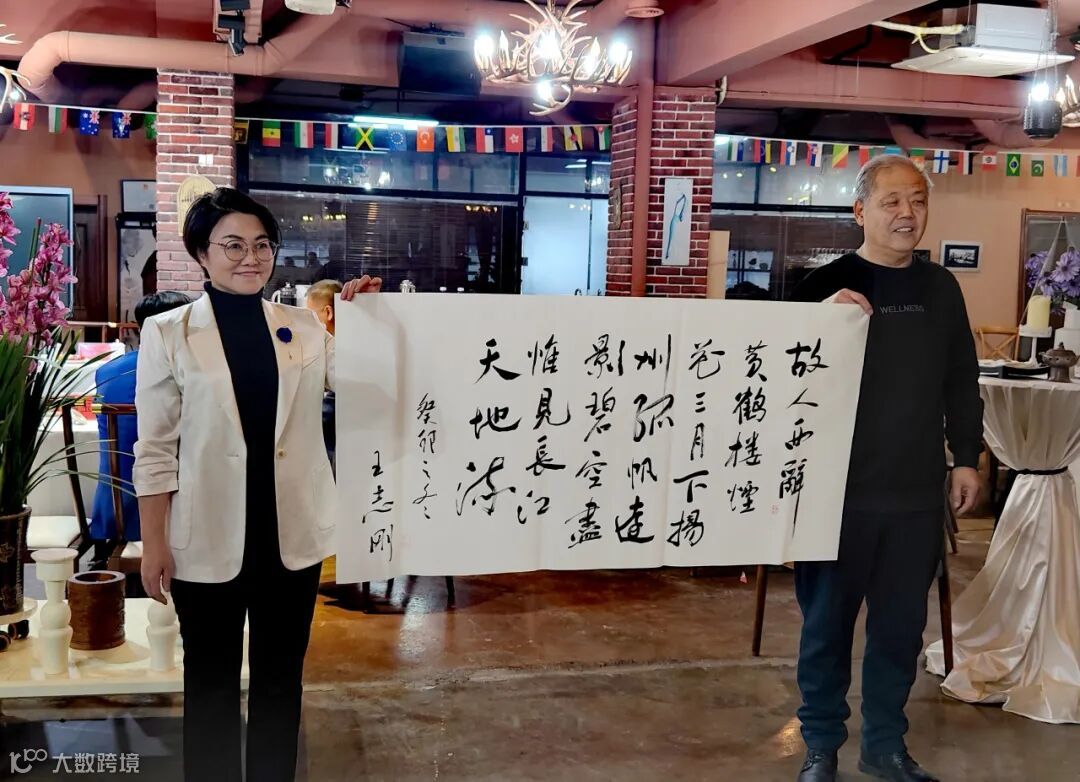 故人西辭
黄鶴樓煙
花三月下揚
州孤帆遠
影碧空盡
惟見長江
天地流
癸卯之冬
王志剛
大数跨境